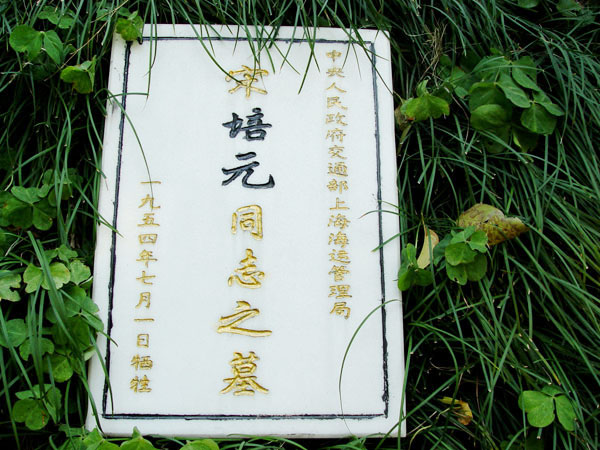 中央人民政府交通部上海海运管理局
宋培元同志之墓
一九五四年七月一日牺牲